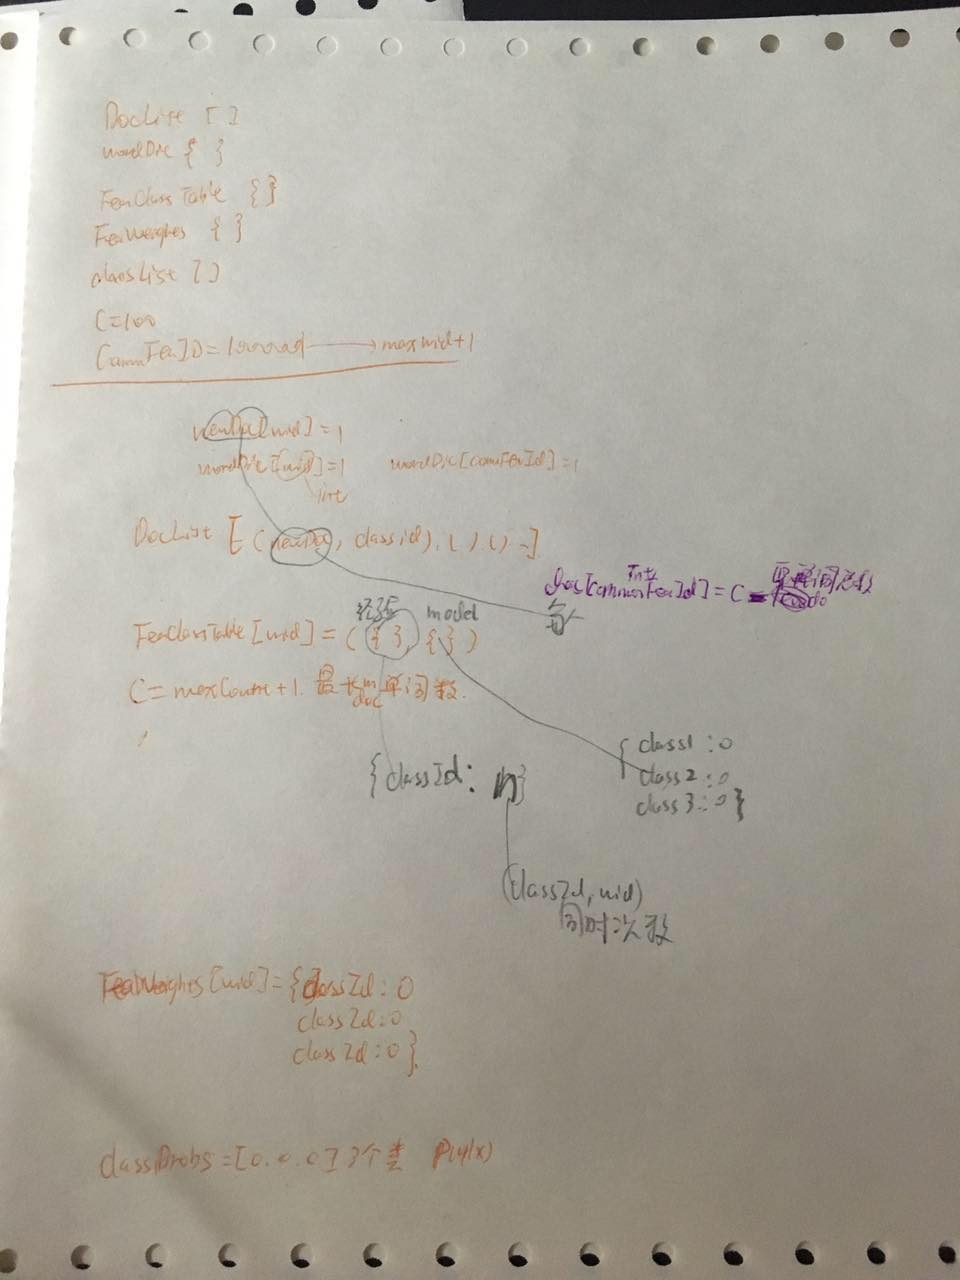 DocList [ ]
wordDic { }
FeaClassTable { }
FeaWeights { }
classList [ ]
C=100
maxwid+1
newDoc[wid]=1
wordDic[wid]=1 wordDic[comFeaId]=1
int
DocList [ (newDoc, classid), ( ) ( ) ~]
Doc[CommonFeaId] = C -
经验 model
FeaClassTable[wid] = ( { }, { } )
C = maxCount+1. 最长 doc 单词数.
{ class1 : 0
{classId: n} class2 : 0
class3 : 0 }
(classId, wid)
同时次数
FeaWeights[wid]={classId: 0
classId:0
classId:0}.
classProbs=[0.0.0] 3个类 P(y|x)